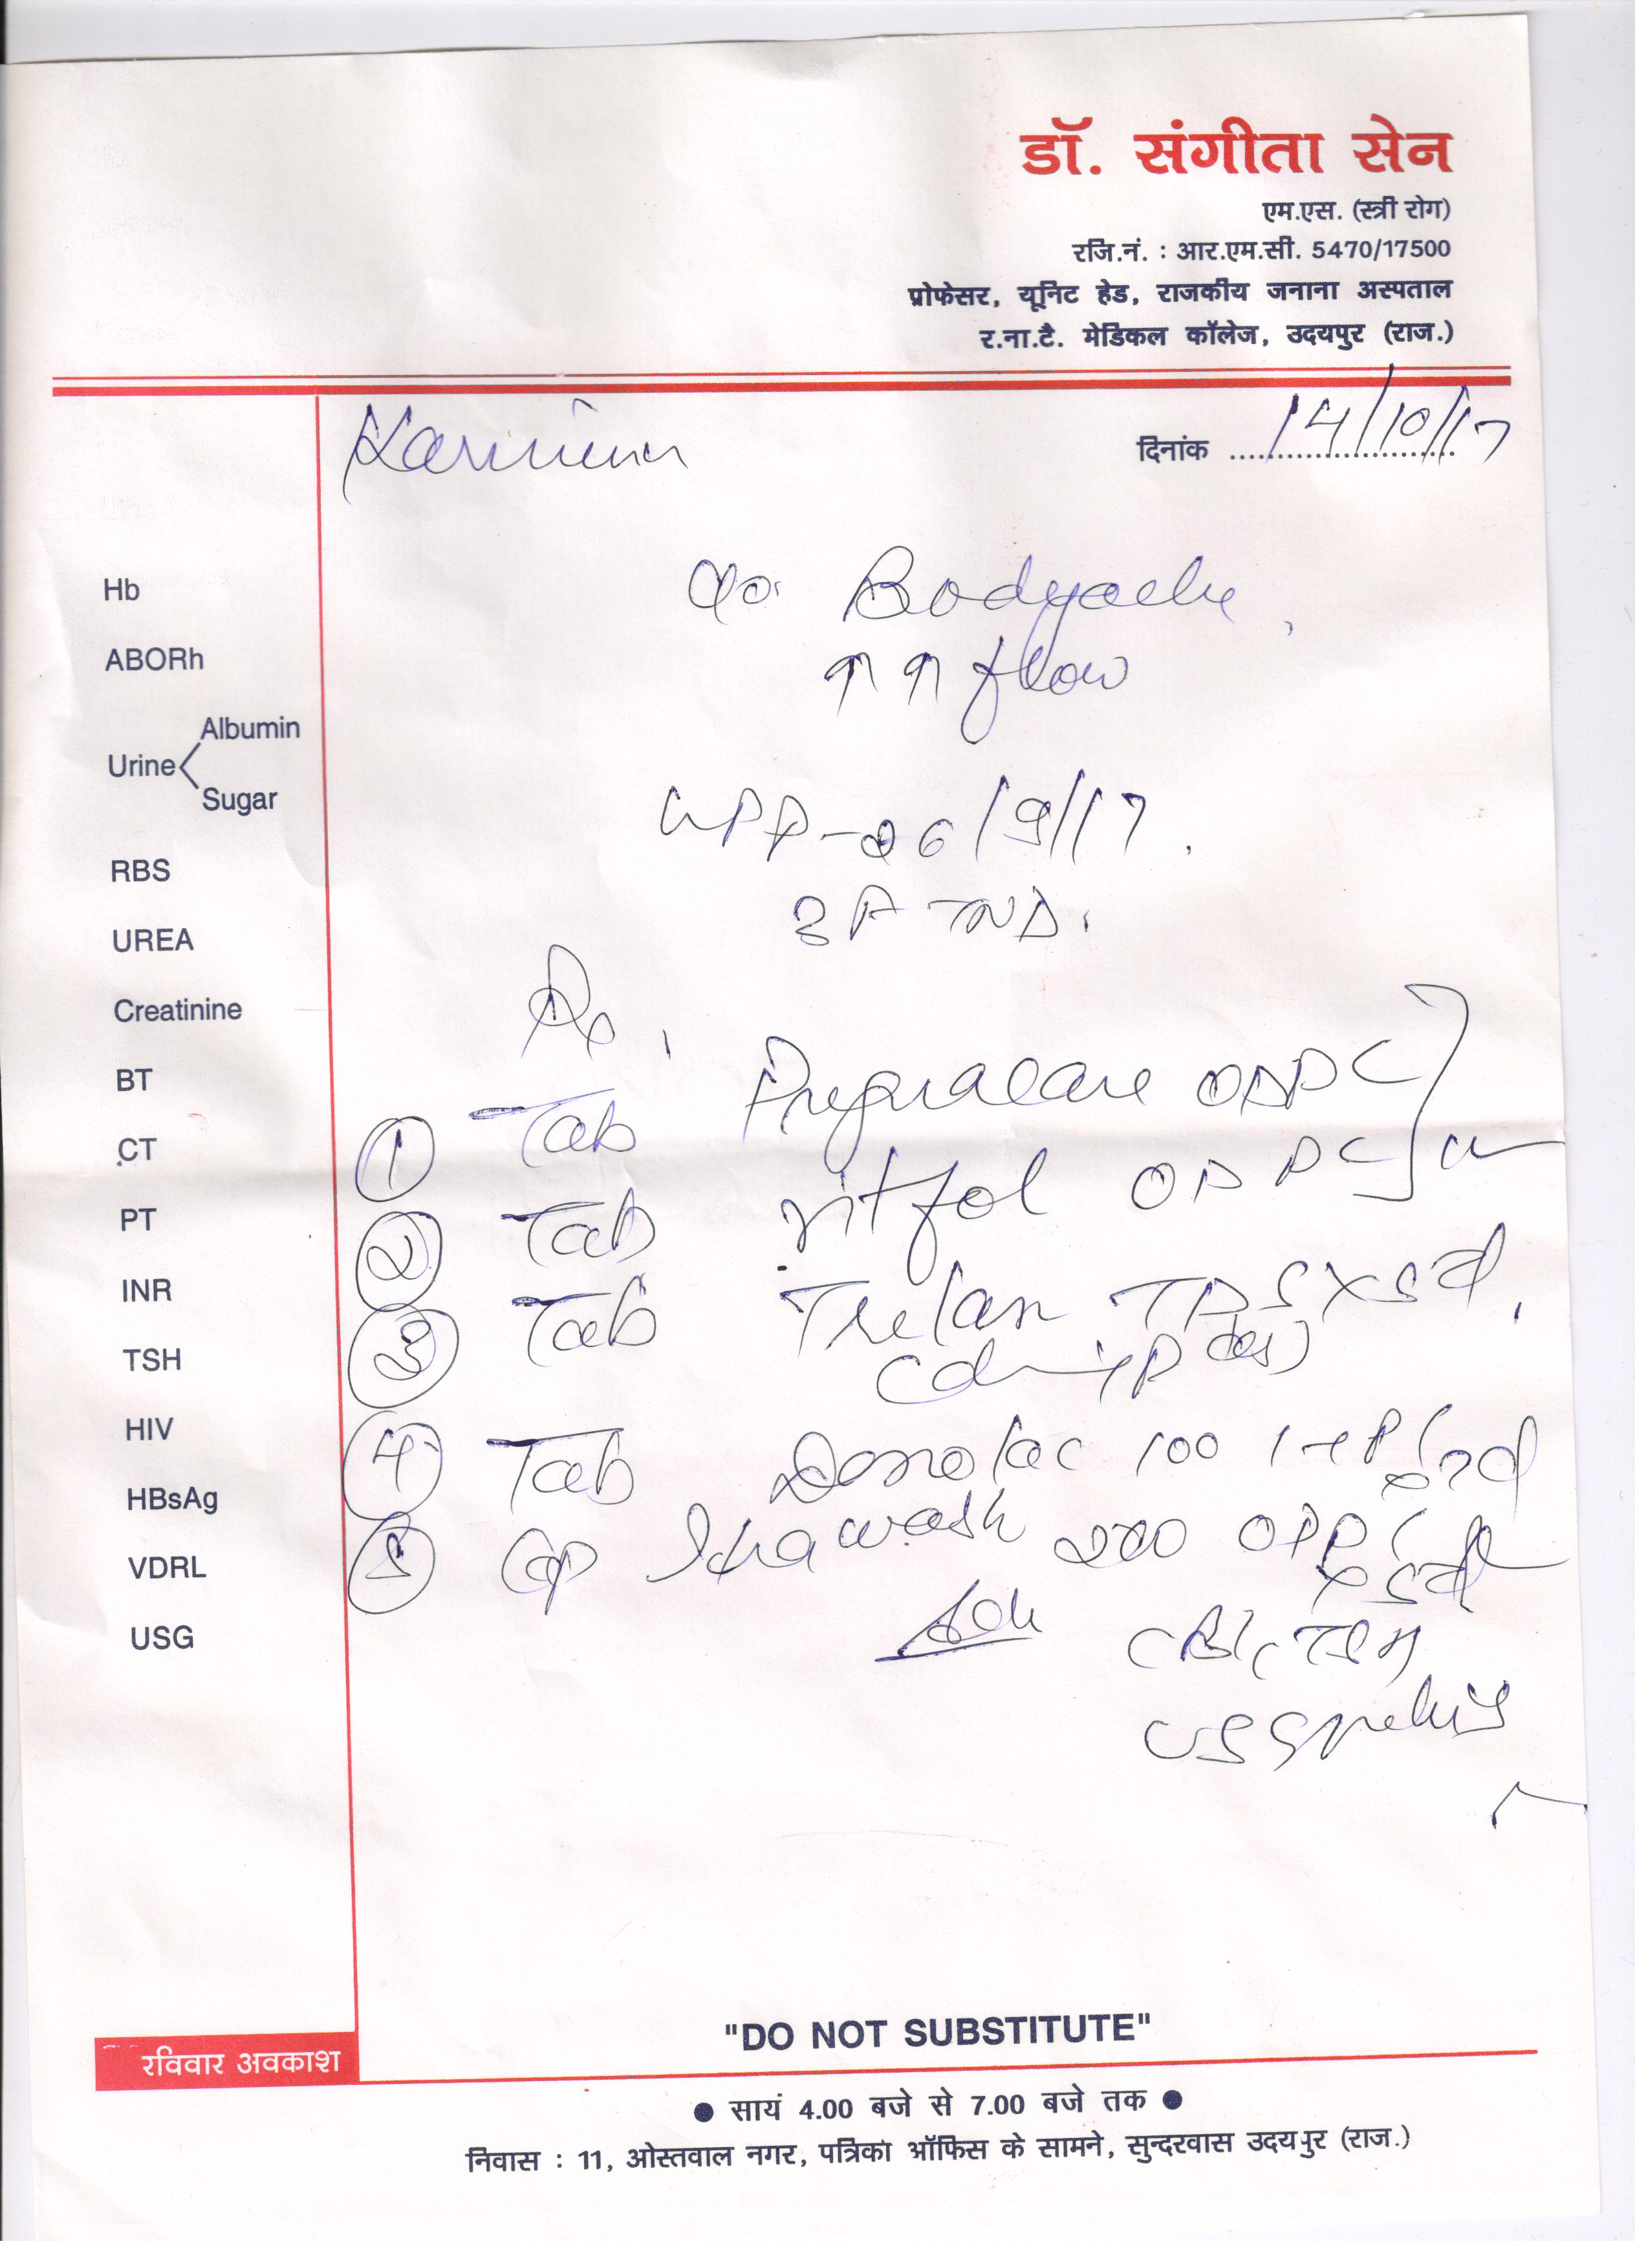 डॉ. संगीता सेन
एम.एस. (स्त्री रोग)
रजि.नं. : आर.एम.सी. 5470/17500
प्रोफेसर, यूनिट हेड, राजकीय जनाना अस्पताल
र.ना.टै. मेडिकल कॉलेज, उदयपुर (राज.)
दिनांक 14/10/17
Hb
ABORh
Urine
Albumin
Sugar
RBS
UREA
Creatinine
BT
CT
PT
INR
TSH
HIV
HBsAg
VDRL
USG
c/o Bodyache,
↑↑ flow
26/9/17.
Rx,
① Tab Pregnacare OD PC
② Tab OD PC
③ Tab
④ Tab 100
⑤ Cap 200 OD PC
Adv CBC, TSH
USG pelvis
"DO NOT SUBSTITUTE"
रविवार अवकाश
● सायं 4.00 बजे से 7.00 बजे तक ●
निवास : 11, ओस्तवाल नगर, पत्रिका ऑफिस के सामने, सुन्दरवास उदयपुर (राज.)